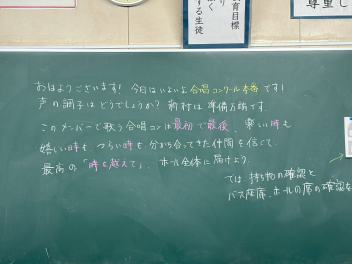 育目標
する生徒
尊重し
おはようございます！ 今日はいよいよ合唱コンクール本番です！
声の調子はどうでしょうか？ 新村は準備万端です。
このメンバーで歌う合唱コンは最初で最後。楽しい時も
嬉しい時も、つらい時も分かち合ってきた仲間を信じて、
最高の「時を越えて」、ホール全体に届けよう。
では持ち物の確認と
バス座席、ホールの席の確認を